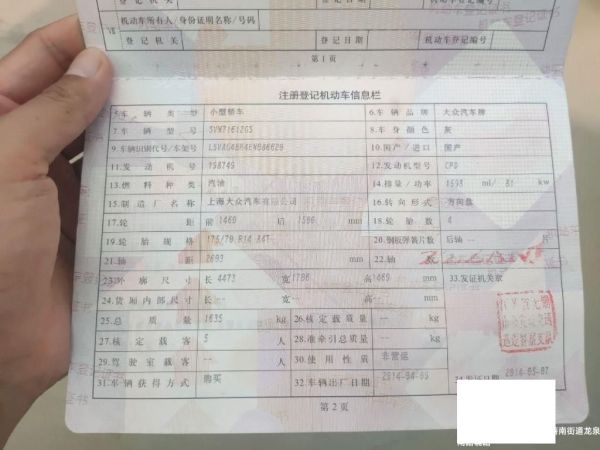 机动车所有人/身份证明名称/号码
Ⅶ
登记机关
登记日期
机动车登记编号
第1页
注册登记机动车信息栏
5.车辆类型 小型轿车 6.车辆品牌 大众汽车牌
7.车辆型号 8.车身颜色 灰
9.车辆识别代号/车架号 10.国产/进口 国产
11.发动机号 12.发动机型号 CPD
13.燃料种类 汽油 14.排量/功率 1598 ml/ kw
15.制造厂名称 上海大众汽车有限公司 16.转向形式 方向盘
17.轮距 前 1460 后 mm 18.轮胎数 4
19.轮胎规格 175/70 R14 84T 20.钢板弹簧片数 后轴 -- 片
21.轴距 2603 mm 22.轴数
23.外廓尺寸 长 4473 宽 1706 高 mm 33.发证机关章
24.货厢内部尺寸 长 -- 宽 -- 高 -- mm
25.总质量 1635 kg 26.核定载质量 -- kg
27.核定载客 5 人 28.准牵引总质量 -- kg
29.驾驶室载客 -- 人 30.使用性质 非营运
31.车辆获得方式 购买 32.车辆出厂日期 2014-04-05 34.发证日期 2014-05-07
第2页
南街道龙泉